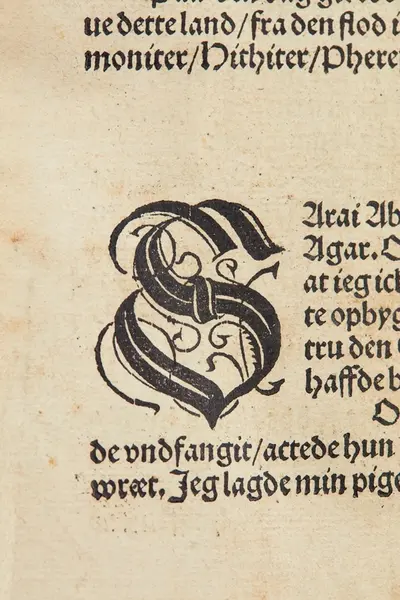 ue dette land/fra den flod i
moniter/Hithiter/Phere
S
Arai Ab
Agar. O
at ieg ick
te opbyg
tru den
haffde b
O
de vndfangit/actede hun
wræt. Jeg lagde min pige